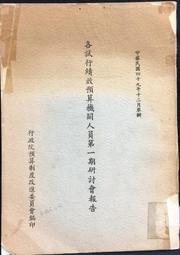 中華民國四十九年十二月草輯
各試行績效預算機關人員第一期研討會報告
行政院預算制度改進委員會編印